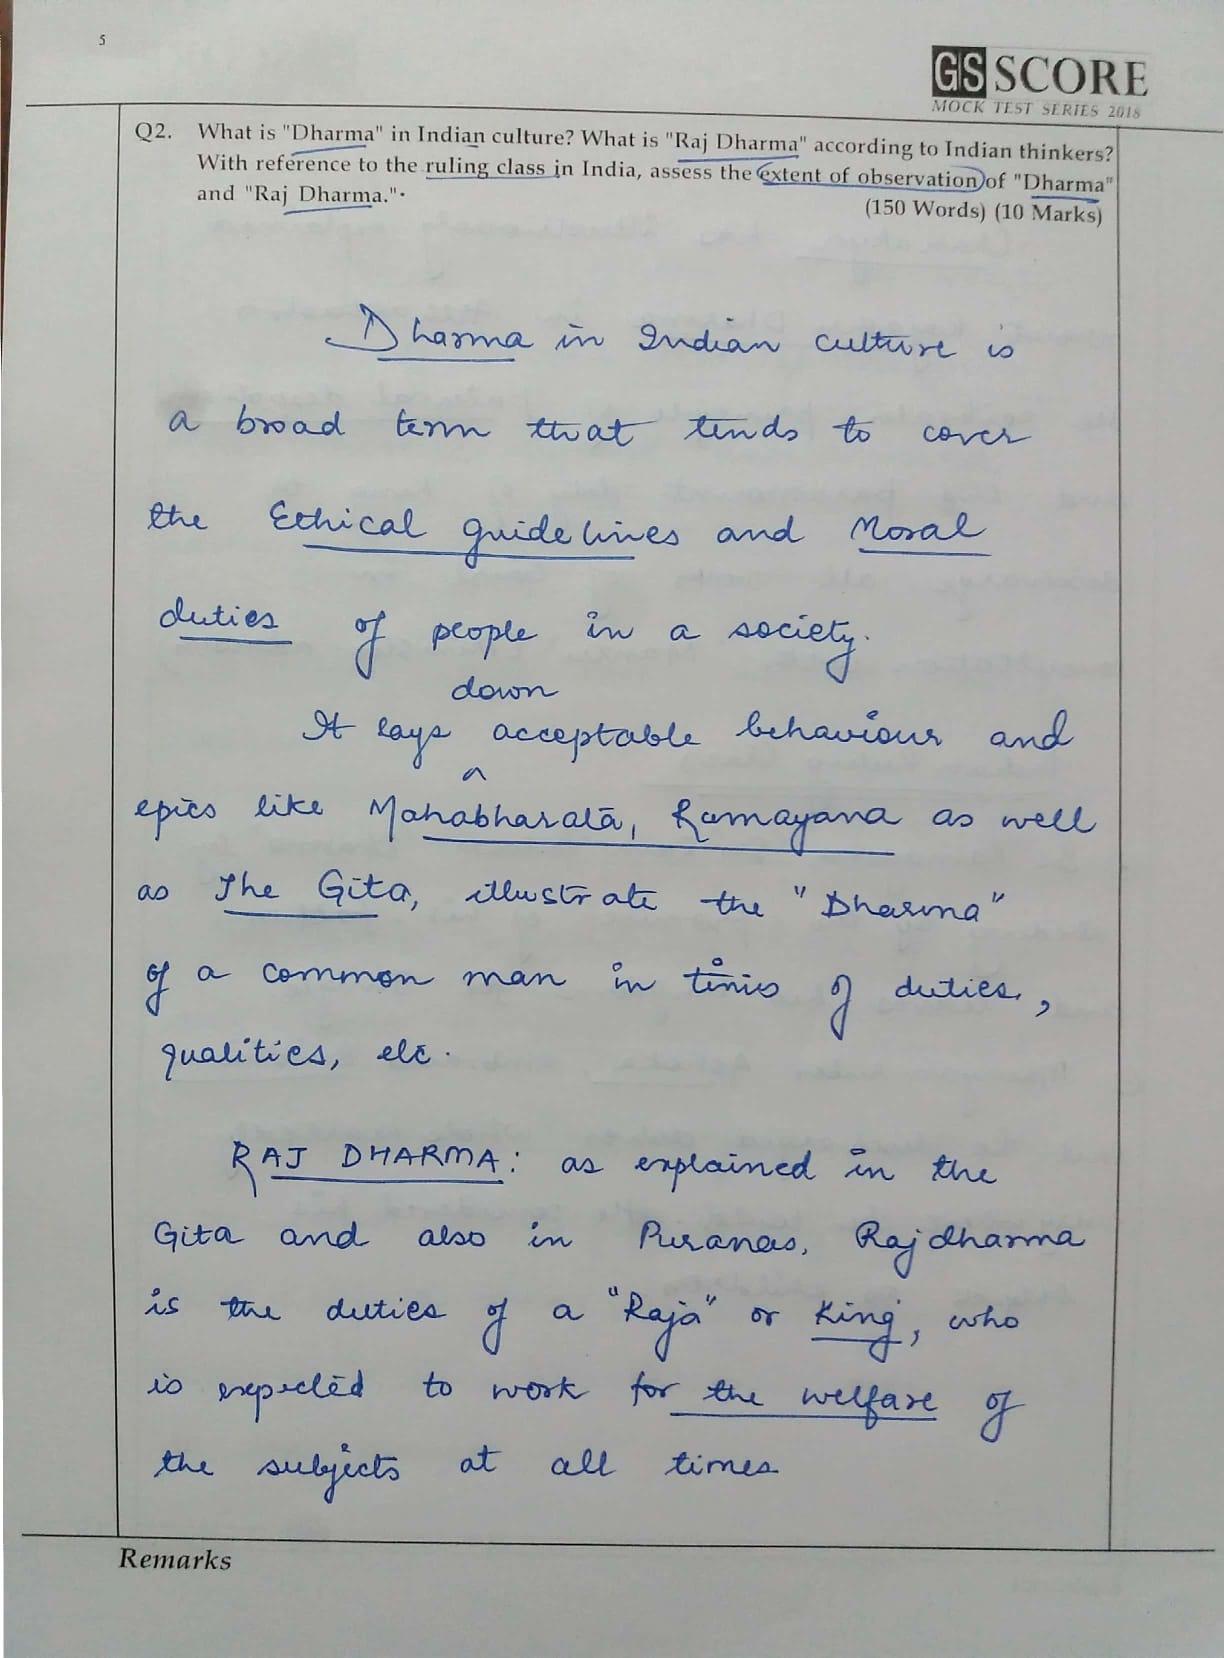 5
GS SCORE
MOCK TEST SERIES 2018
Q2. What is "Dharma" in Indian culture? What is "Raj Dharma" according to Indian thinkers?
With reference to the ruling class in India, assess the extent of observation of "Dharma"
and "Raj Dharma."
(150 Words) (10 Marks)
Dharma in Indian culture is
a broad term that tends to cover
the Ethical guidelines and Moral
duties of people in a society.
down
It lays ^ acceptable behaviour and
epics like Mahabharata, Ramayana as well
as The Gita, illustrate the "Dharma"
of a common man in terms of duties,
qualities, etc.
RAJ DHARMA: as explained in the
Gita and also in Puranas, Rajdharma
is the duties of a "Raja" or King, who
is expected to work for the welfare of
the subjects at all times
Remarks